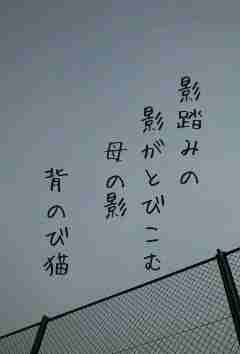 影踏みの
影がとびこむ
母の影
背のび猫